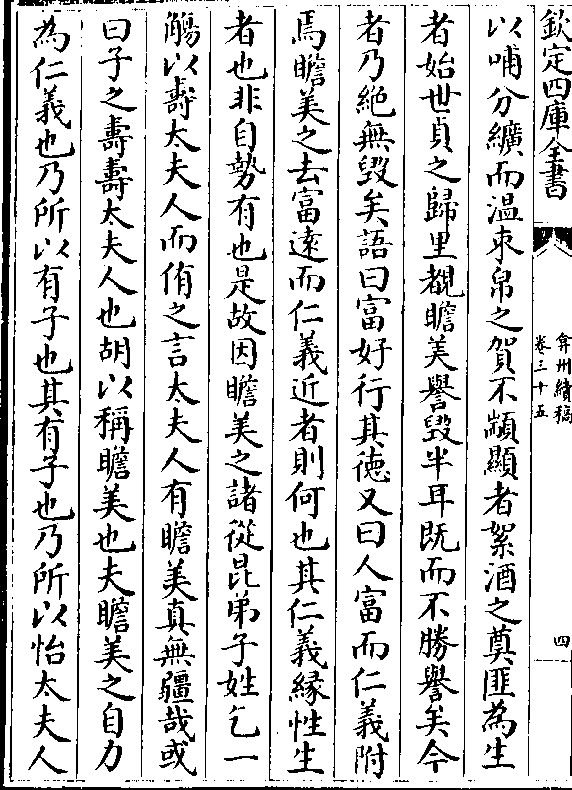 欽定四庫全書
弇州續稿
卷三十五
四
以哺分纊而溫束帛之賀不顓顯者絮酒之奠匪為生
者始世貞之歸里覩瞻美譽毀半耳既而不勝譽矣今
者乃絶無毀矣語曰富好行其徳又曰人富而仁義附
焉瞻美之去富遠而仁義近者則何也其仁義緣性生
者也非自勢有也是故因瞻美之諸從昆弟子姓乞一
觴以壽太夫人而侑之言太夫人有瞻美真無疆哉或
曰子之壽壽太夫人也胡以稱瞻美也夫瞻美之自力
為仁義也乃所以有子也其有子也乃所以怡太夫人